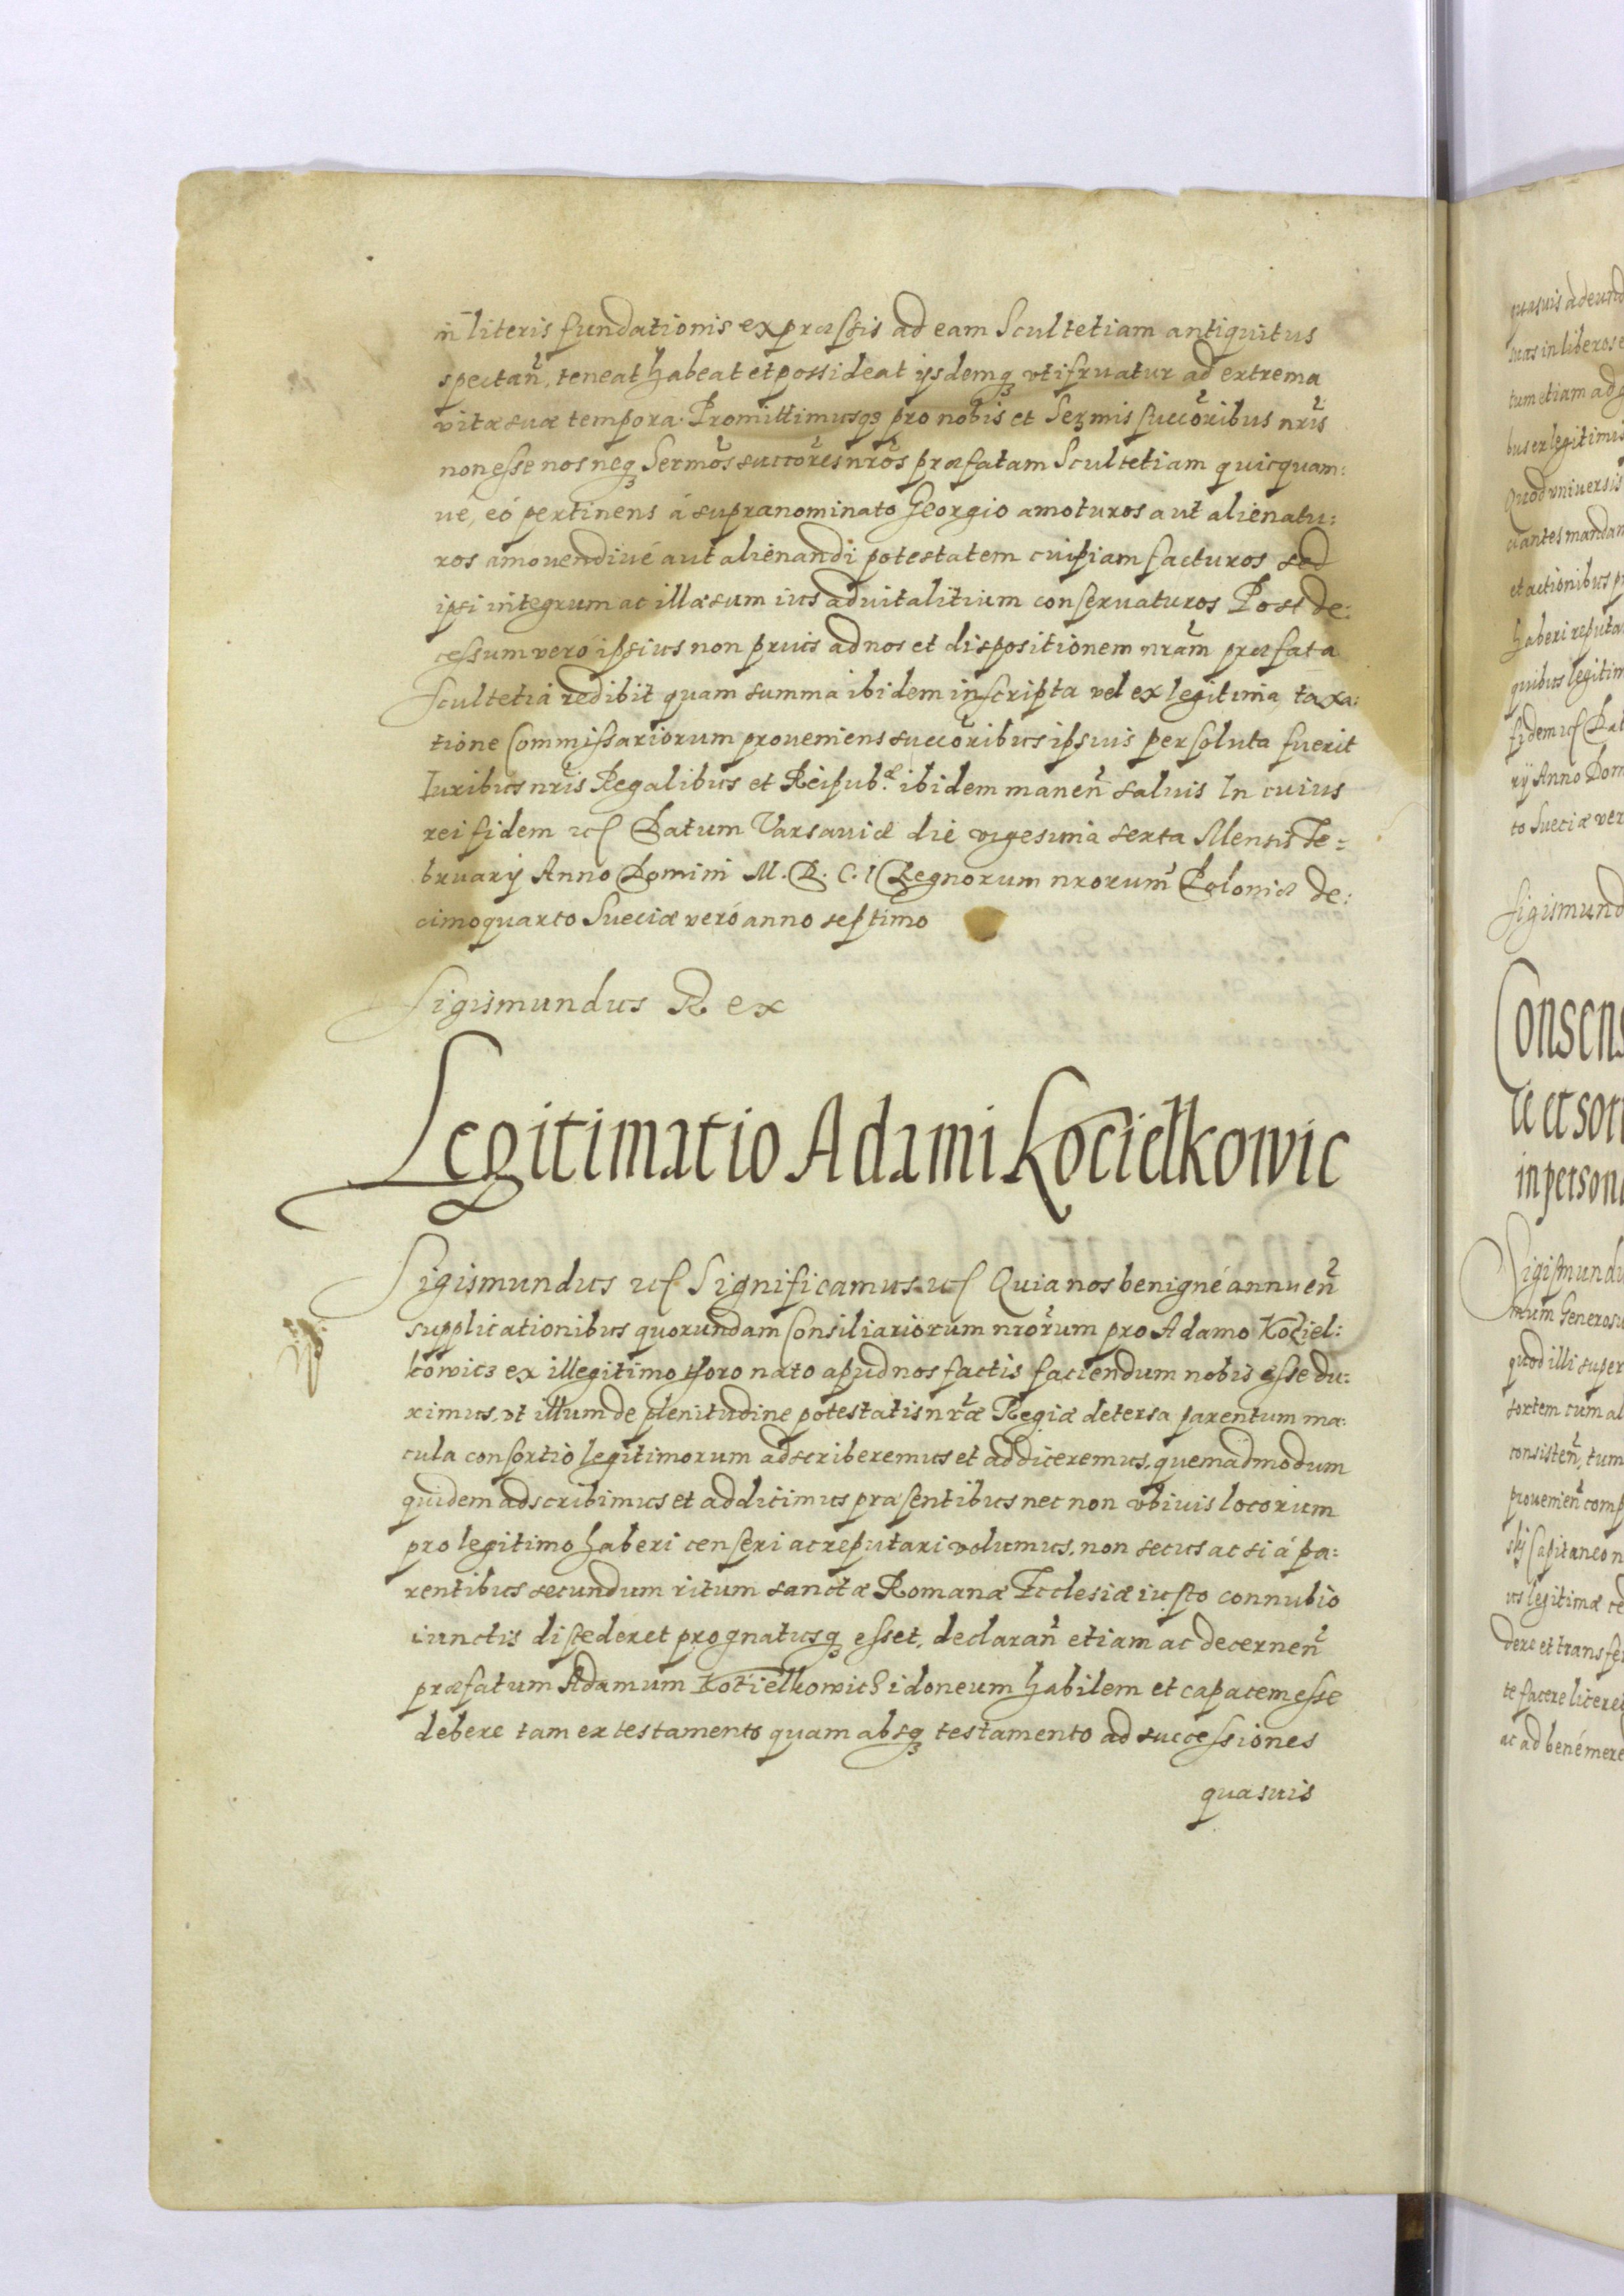 in literis fundationis expræssis ad eam Scultetiam antiquitus
spectan̄, teneat habeat et possideat ijsdemq3 vtifruatur ad extrema
vitæ suæ tempora. Promittimusq3 pro nobis et Sermis succoribus nris
non esse nos neq3 Sermos succores nros præfatam Scultetiam quicquam:
ué, eó pertinens á supranominato Georgio amoturos aut alienatu:
ros amouendiué aut alienandi potestatem cuipiam facturos sed
ipsi integrum ac illæsum ius aduitalitium conseruaturos Post de:
cessum veró ipsius non prius ad nos et dispositionem nram præfata
Scultetia redibit quam summa ibidem inscripta vel ex legitima taxa:
tione Commissariorum proueniens succoribus ipsius persoluta fuerit
Iuribus nris Regalibus et Reipub. ibidem manen̄ saluis In cuius
rei fidem etc Datum Varsauiæ die vigesima sexta Mensis Fe:
bruarij Anno Domini M. D. C. I Regnorum nrorum Poloniæ de:
cimoquarto Sueciæ veró anno septimo
Sigismundus Rex
Legitimatio Adami Kociełkowic
Sigismundus etc Significamus etc Quia nos benigné annuen̄
supplicationibus quorundam Consiliariorum nrorum pro Adamo Kociel:
kowicz ex illegitimo thoro nato apud nos factis faciendum nobis esse du:
ximus, vt illum de plenitudine potestatis nræ Regiæ detersa parentum ma:
cula consortio legitimorum adscriberemus et addiceremus, quemadmodum
quidem adscribimus et addicimus præsentibus nec non vbiuis locorum
pro legitimo haberi censeri ac reputari volumus, non secus ac si á pa:
rentibus secundum ritum sanctæ Romanæ Ecclesiæ iusto connubio
iunctis discederet prognatusq3 esset, declaran̄ etiam ac decernen̄
præfatum Adamum Kociełkowic idoneum habilem et capacem esse
debere tam ex testamento quam absq3 testamento ad successiones
quasuis
quasuis adeund
bus ex legitimis
Quod vniuersis
et actionibus
haberi reputa
quibus legitim
fidem etc Dat
rij Anno Dom
to Sueciæ ver
Sigismund
Consens
in person
Sigismundu
quod illi super
sortem cum al
consisten̄, tum
prouenien̄ comp
Capitaneo n
legitimæ
dere et transfer
te facere licere
ac ad bené mere